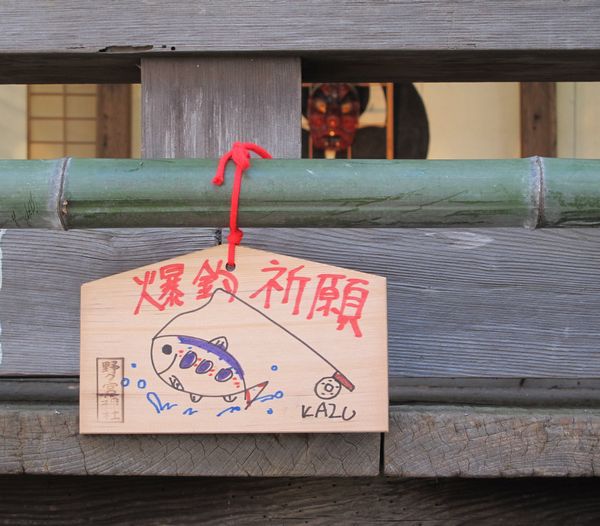 爆釣祈願
野々宮神社
KAZU